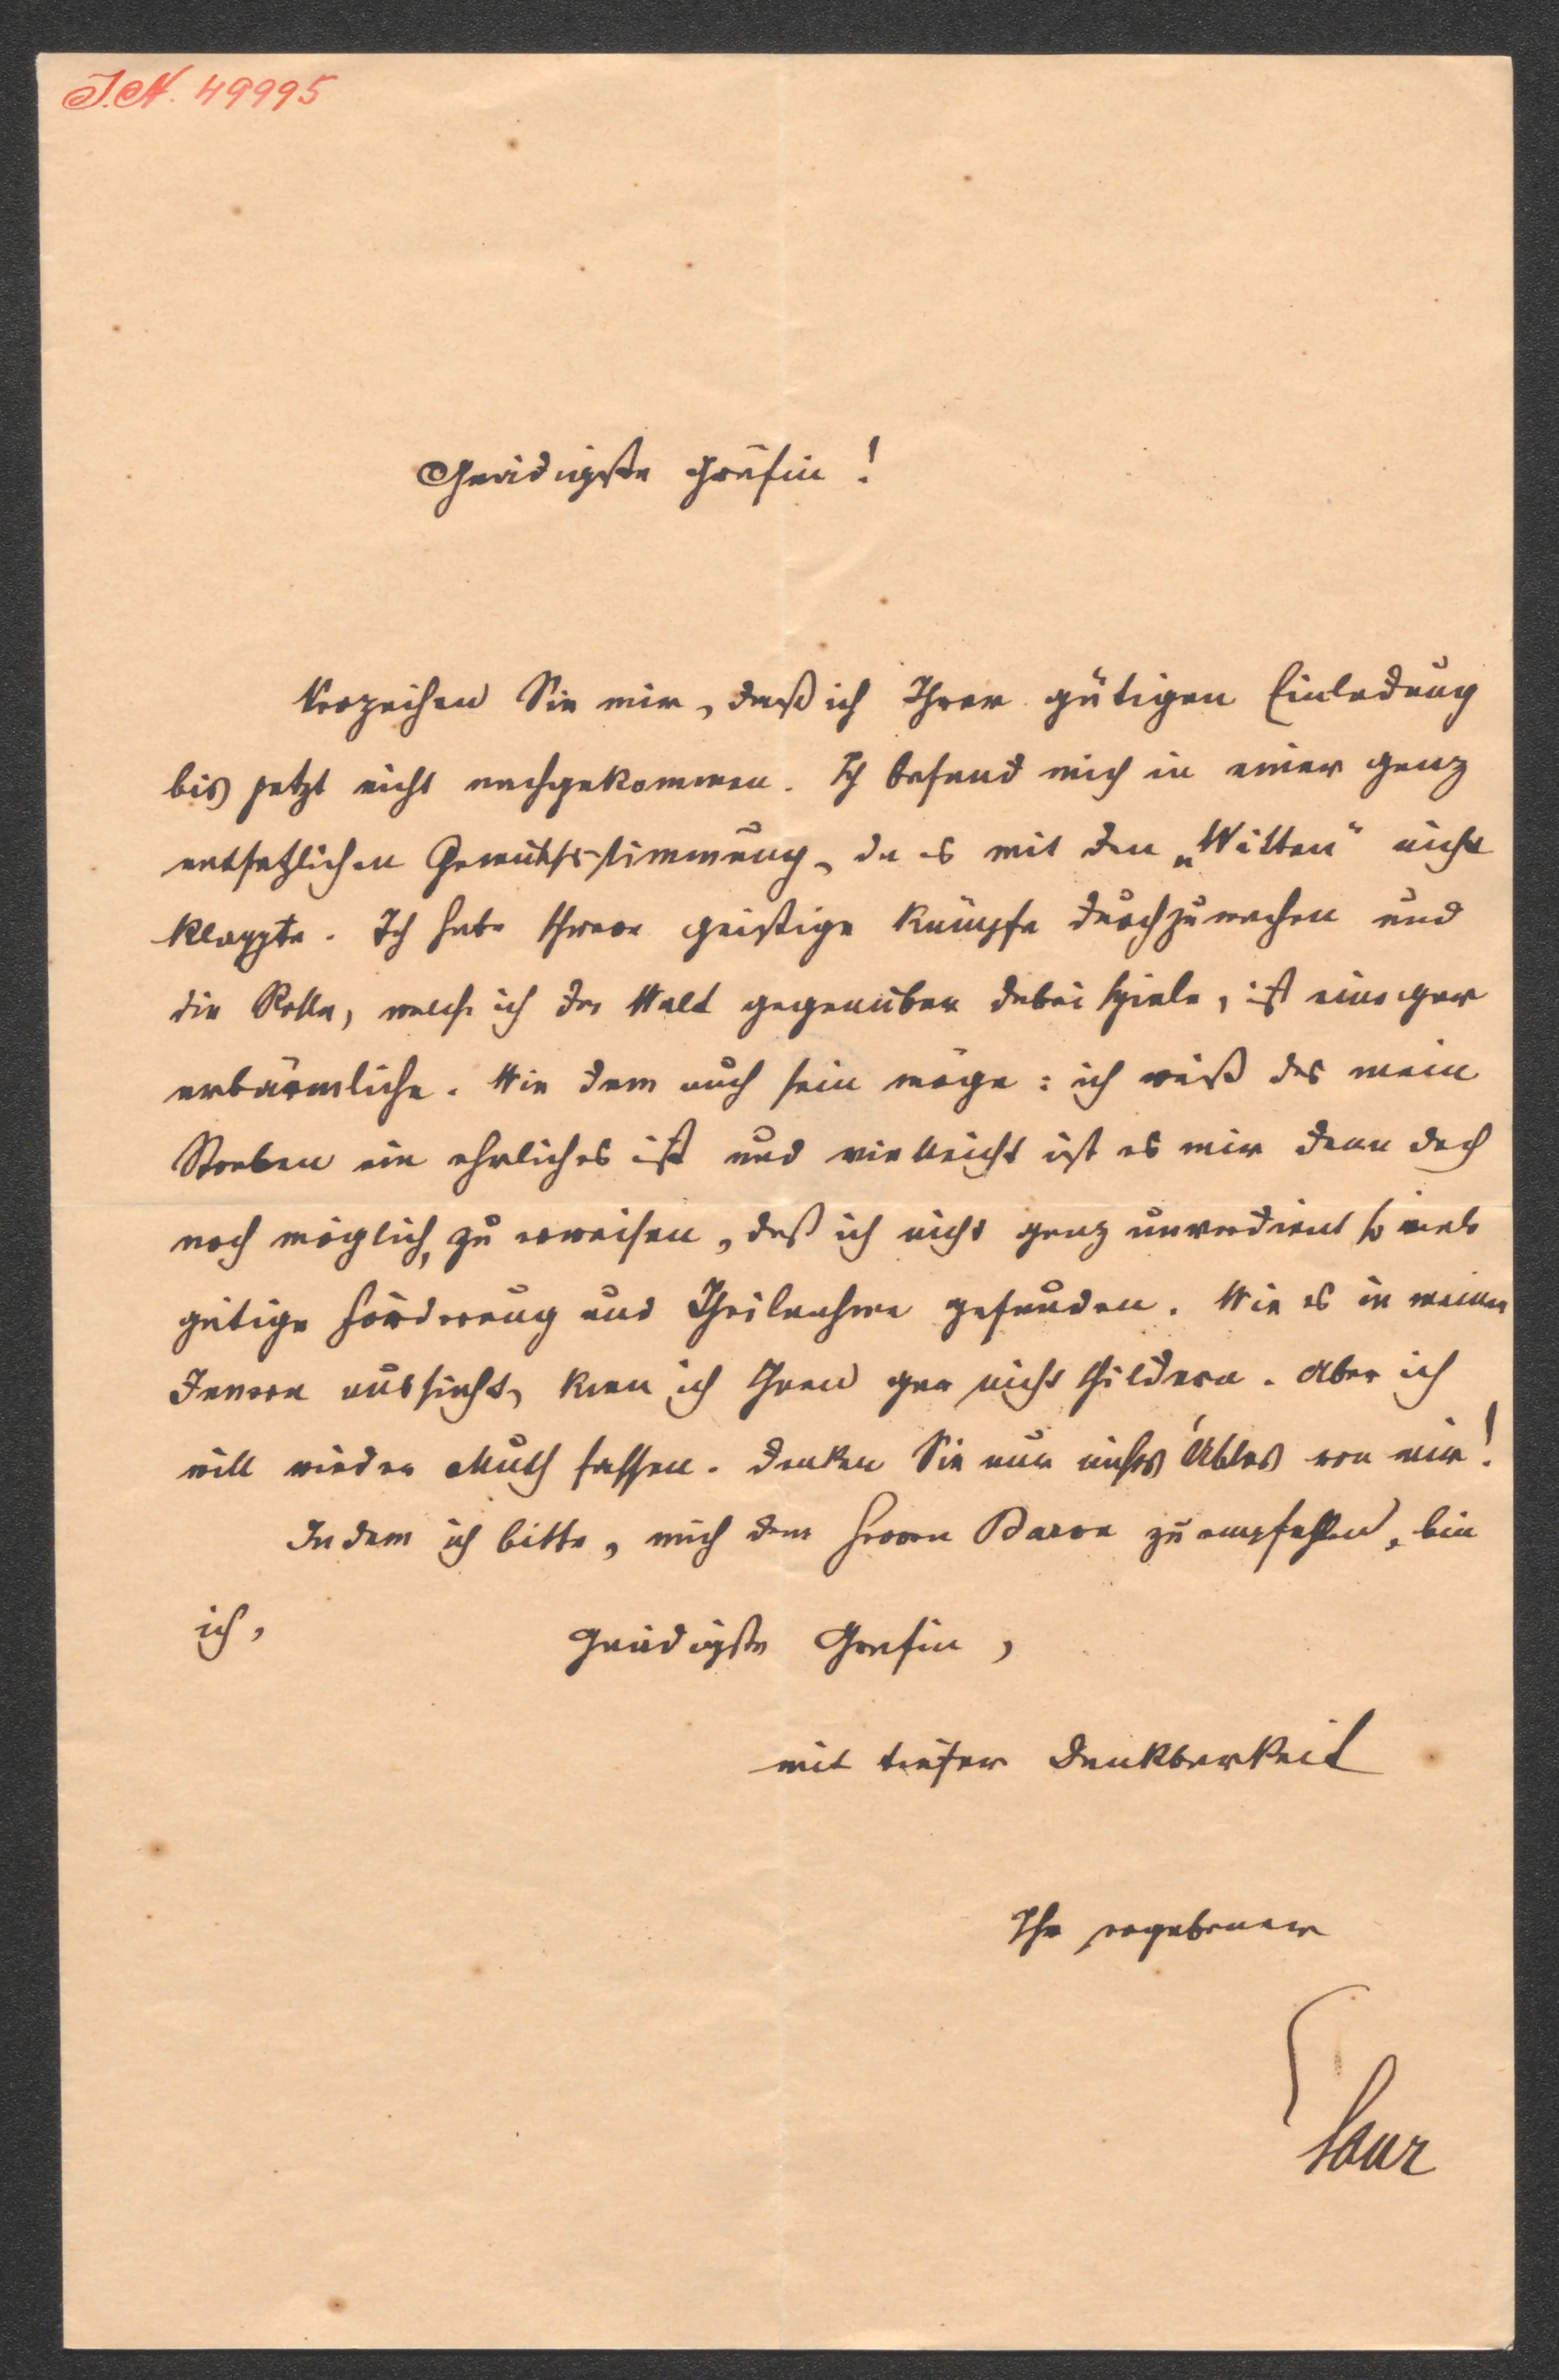 I.N. 49995
Gnädigste Gräfin!
Verzeihen Sie mir, daß ich Ihrer gütigen Einladung
bis jetzt nicht nachgekommen. Ich befand mich in einer ganz
entsetzlichen Gemüthsstimmung, da es mit den „Witten“ nicht
klappte. Ich habe schwere geistige Kämpfe durchzumachen und
die Rolle, welche ich der Welt gegenüber dabei spiele, ist eine gar
erbärmliche. Wie dem auch sein möge: ich weiß das mein
Streben ein ehrliches ist und vielleicht ist es mir denn doch
noch möglich, zu erweisen, daß ich nicht ganz unverdient so viele
gütige Förderung und Theilnahme gefunden. Wie es in meinem
Innern aussieht, kann ich Ihnen gar nicht schildern. Aber ich
will wieder Muth fassen. Denken Sie nur nichts Übles von mir!
Indem ich bitte, mich dem Herrn Baron zu empfehlen, bin
ich, gnädigste Gräfin,
mit tiefer Dankbarkeit
Ihr ergebener
Saar